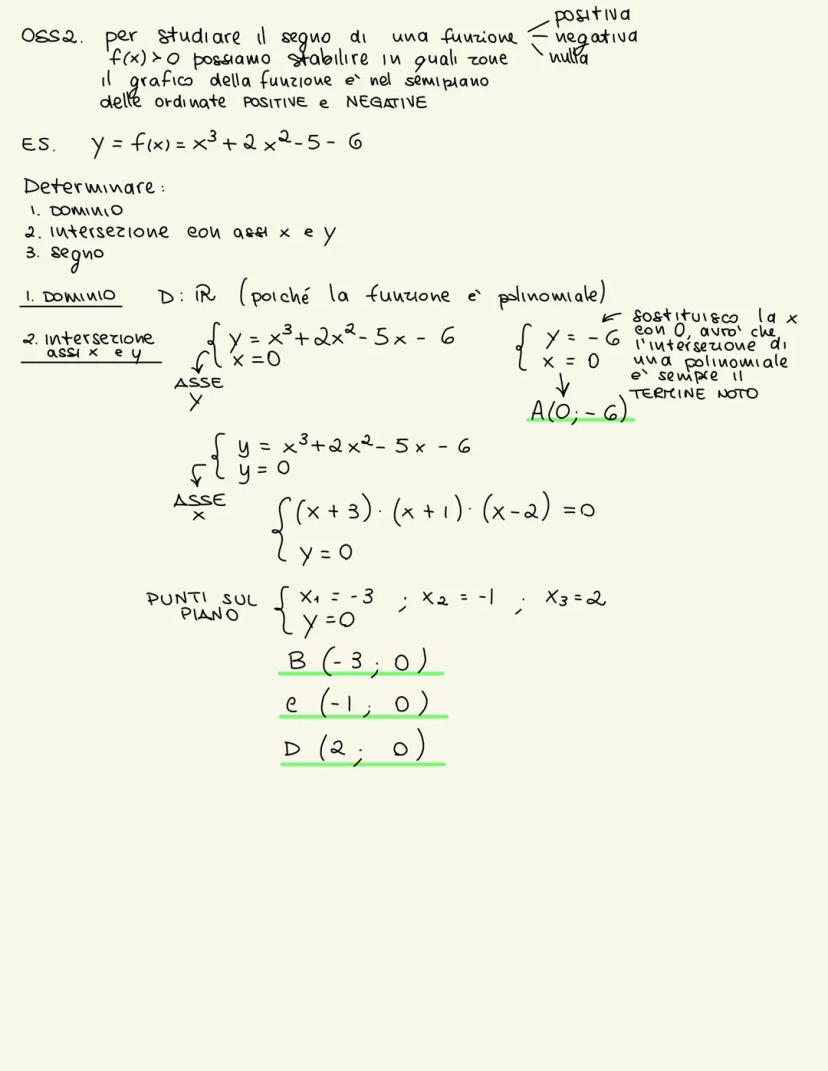 OSS2. per studiare il segno di una funzione
positiva
negativa
nulla
f(x)>0 possiamo stabilire in quali zone
il grafico della funzione e' nel semipiano
delle ordinate POSITIVE e NEGATIVE
ES. y = f(x) = x³ + 2x² - 5 - 6
Determinare:
1. DOMINIO
2. intersezione con assi x e y
3. segno
1. DOMINIO D: ℝ (poiché la funzione e' polinomiale)
2. intersezione assi x e y
{ y = x³ + 2x² - 5x - 6
x = 0
ASSE
y
{ y = -6
x = 0
A(0; -6)
sostituisco la x
con 0, avro' che
l'intersezione di
una polinomiale
e' sempre il
TERMINE NOTO
{ y = x³ + 2x² - 5x - 6
y = 0
ASSE
x
{ (x + 3) · (x + 1) · (x - 2) = 0
y = 0
PUNTI SUL PIANO
{ x₁ = -3 ; x₂ = -1 ; x₃ = 2
y = 0
B (-3; 0)
C (-1; 0)
D (2; 0)